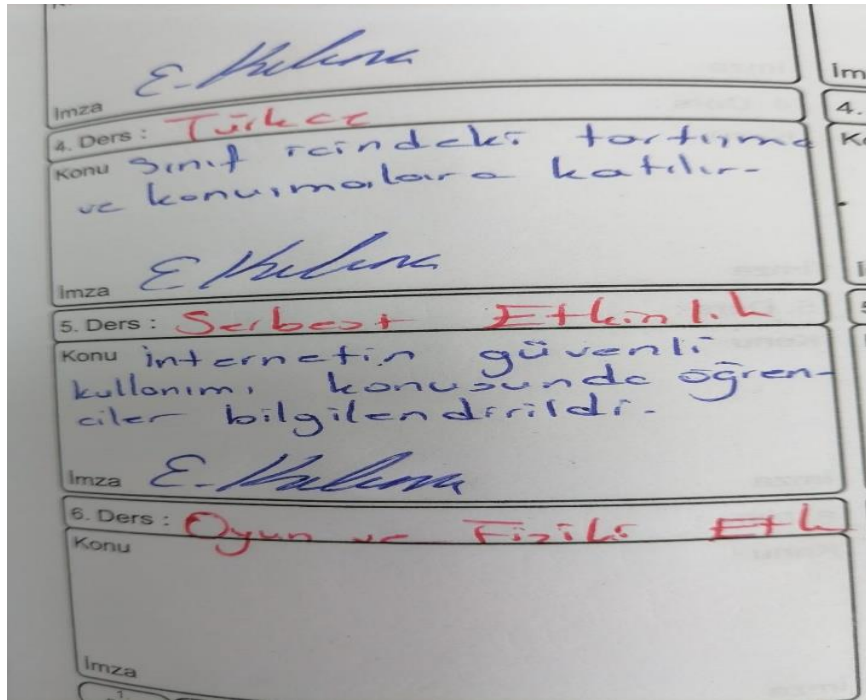 İmza
4. Ders : Türkçe
Konu Sınıf içindeki tartışma
ve konuşmalara katılır-
İmza
5. Ders : Serbest Etkinlik
Konu internetin güvenli
kullanımı konusunda öğren-
ciler bilgilendirildi-
İmza
6. Ders : Oyun ve Fiziki Etk
Konu
İmza
4.